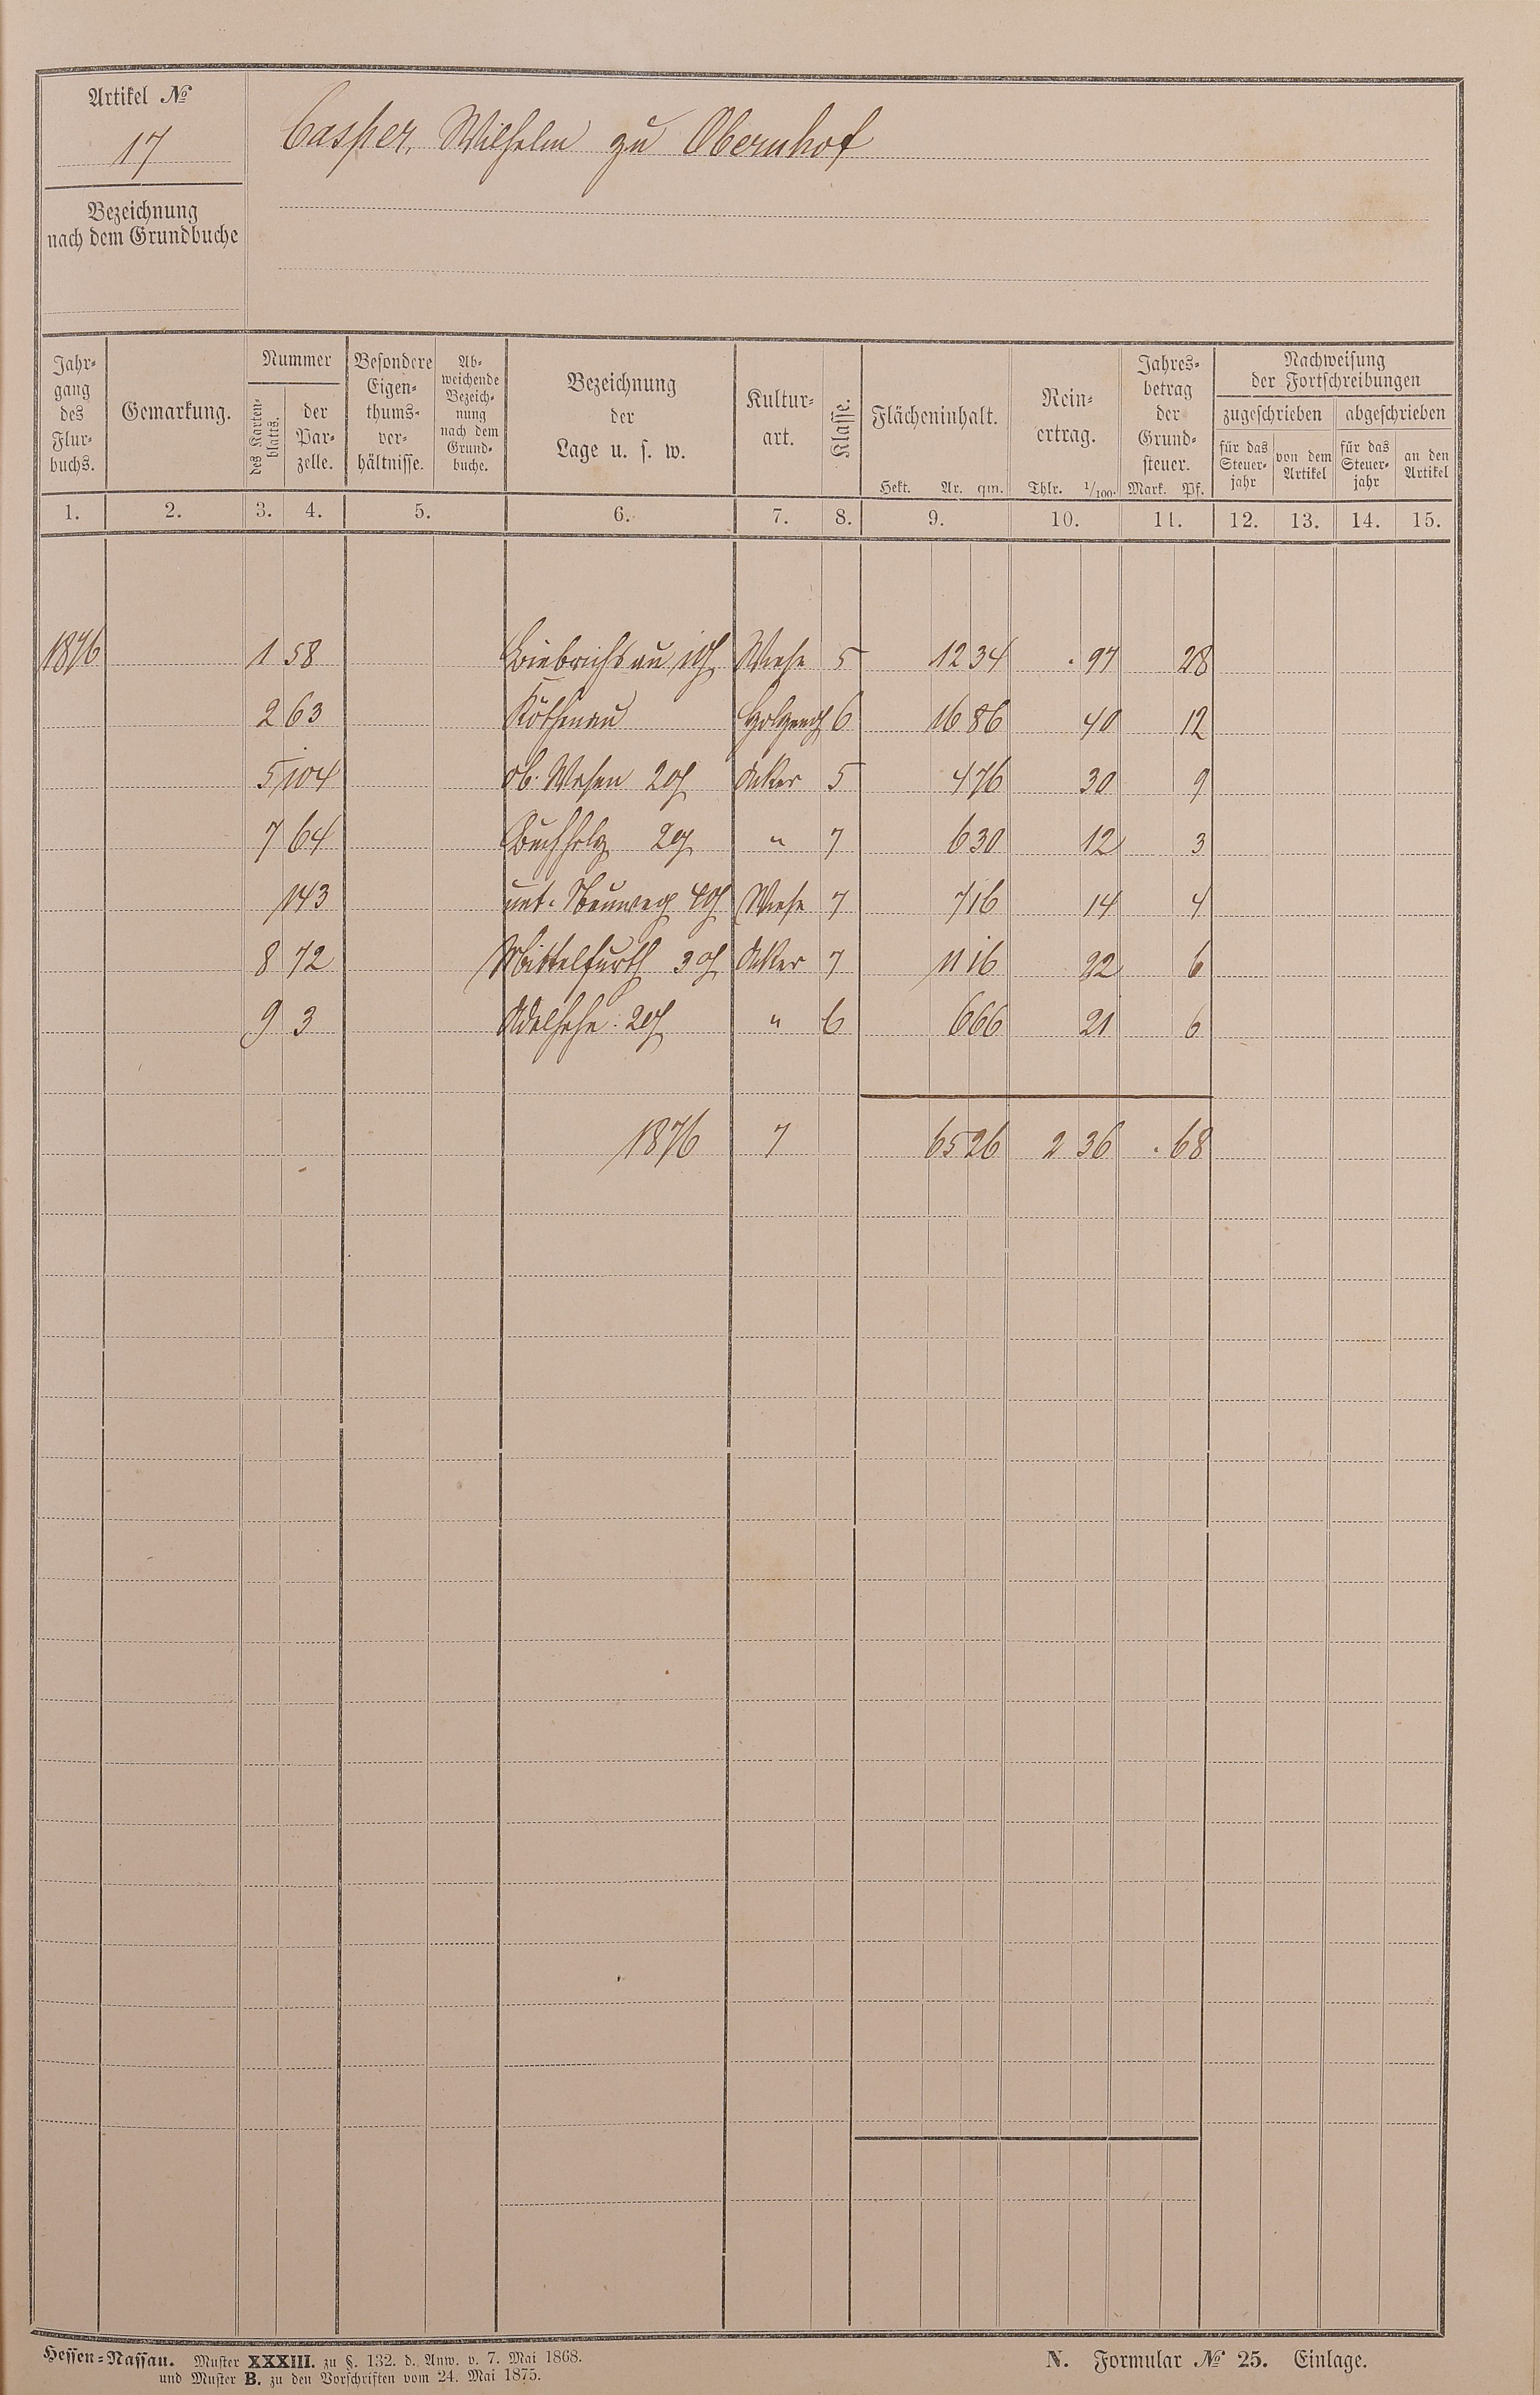 Artikel №
17
Casper, Wilhelm zu Obernhof
Bezeichnung
nach dem Grundbuche
Jahr-
gang
des
Flur-
buchs.
Gemarkung.
Nummer
des Karten-
blatts.
der
Par-
zelle.
Besondere
Eigen-
thums-
ver-
hältnisse.
Ab-
weichende
Bezeich-
nung
nach dem
Grund-
buche.
Bezeichnung
der
Lage u. s. w.
Kultur-
art.
Klasse.
Flächeninhalt.
Hekt. Ar. qm.
Rein-
ertrag.
Thlr. 1/100.
Jahres-
betrag
der
Grund-
steuer.
Mark. Pf.
Nachweisung
der Fortschreibungen
zugeschrieben abgeschrieben
für das
Steuer-
jahr
von dem
Artikel
für das
Steuer-
jahr
an den
Artikel
1. 2. 3. 4. 5. 6. 7. 8. 9. 10. 11. 12. 13. 14. 15.
1876 1 58 Biebrichsau Wiese 5 12 34 . 97 28
2 63 Köthenau 6 16 86 40 12
5 104 ob. Wesen Acker 5 4 76 30 9
7 64 Buchholz " 7 6 30 12 3
143 unt. Neuweg Wiese 7 7 16 14 4
8 72 Mittelfurth Acker 7 11 16 22 6
9 3 " 6 6 66 21 6
1876 7 65 26 2 36 . 68
Hessen-Nassau. Muster XXXIII. zu §. 132. d. Anw. v. 7. Mai 1868.
und Muster B. zu den Vorschriften vom 24. Mai 1875.
N. Formular № 25. Einlage.